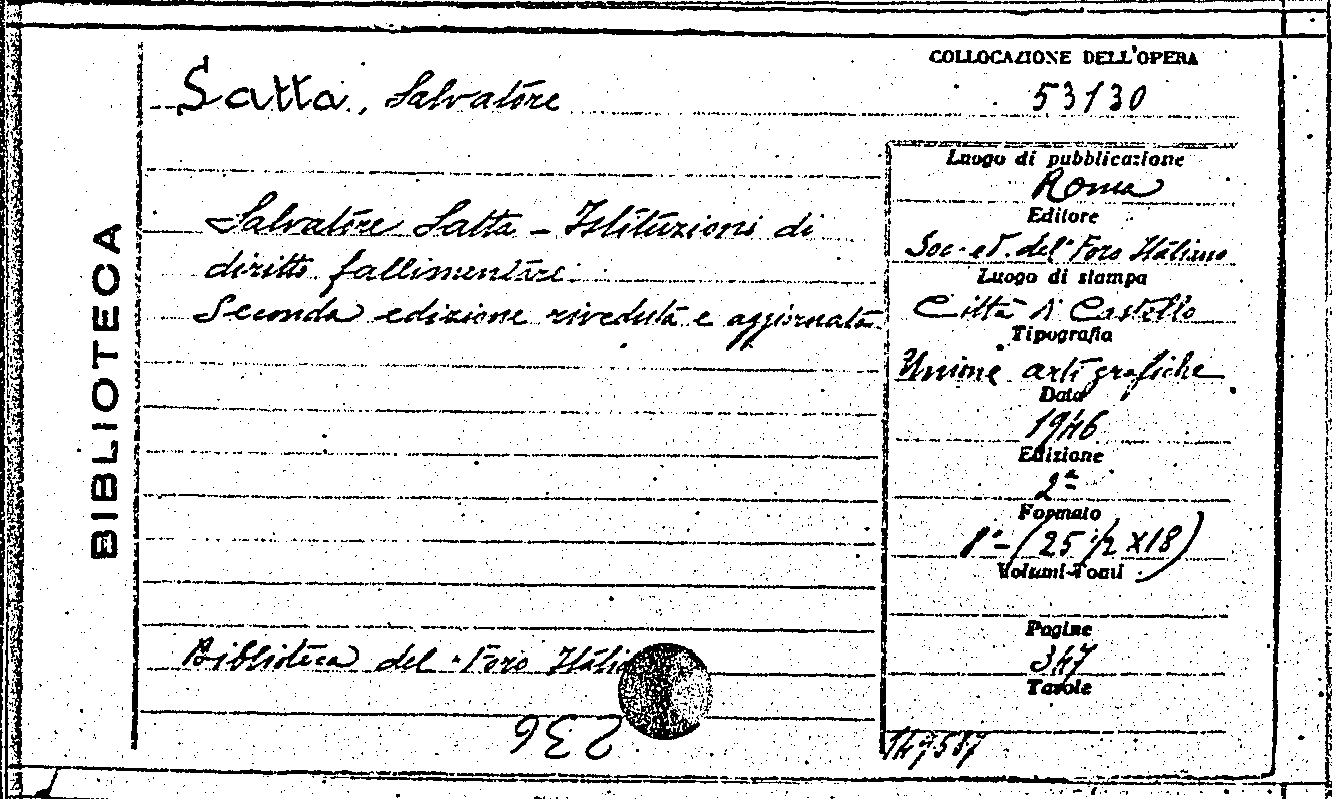 BIBLIOTECA
Satta, Salvatore
Salvatore Satta - Istituzioni di
diritto fallimentare.
Seconda edizione riveduta e aggiornata.
Biblioteca del "Foro
236
COLLOCAZIONE DELL'OPERA
53130
Luogo di pubblicazione
Roma
Editore
Soc. ed. del "Foro Italiano
Luogo di stampa
Città di Castello
Tipografia
Unione arti grafiche
Data
1946
Edizione
2ª
Formato
8°- (25 1/2 x 18)
Volumi-Tomi
Pagine
347
Tavole
149587